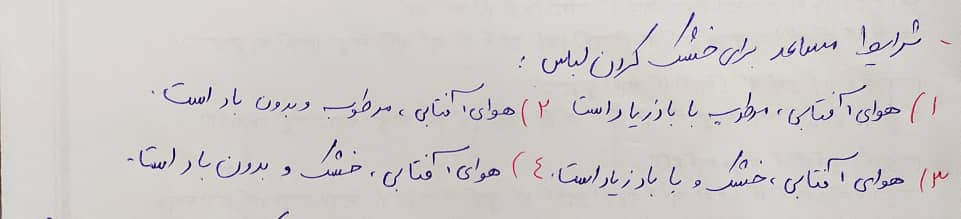 - شرایط مساعد برای خشک کردن لباس :
۱) هوای آفتابی، مرطوب با باد زیاد است ۲) هوای آفتابی، مرطوب و بدون باد است.
۳) هوای آفتابی، خشک و با باد زیاد است. ٤) هوای آفتابی، خشک و بدون باد است.